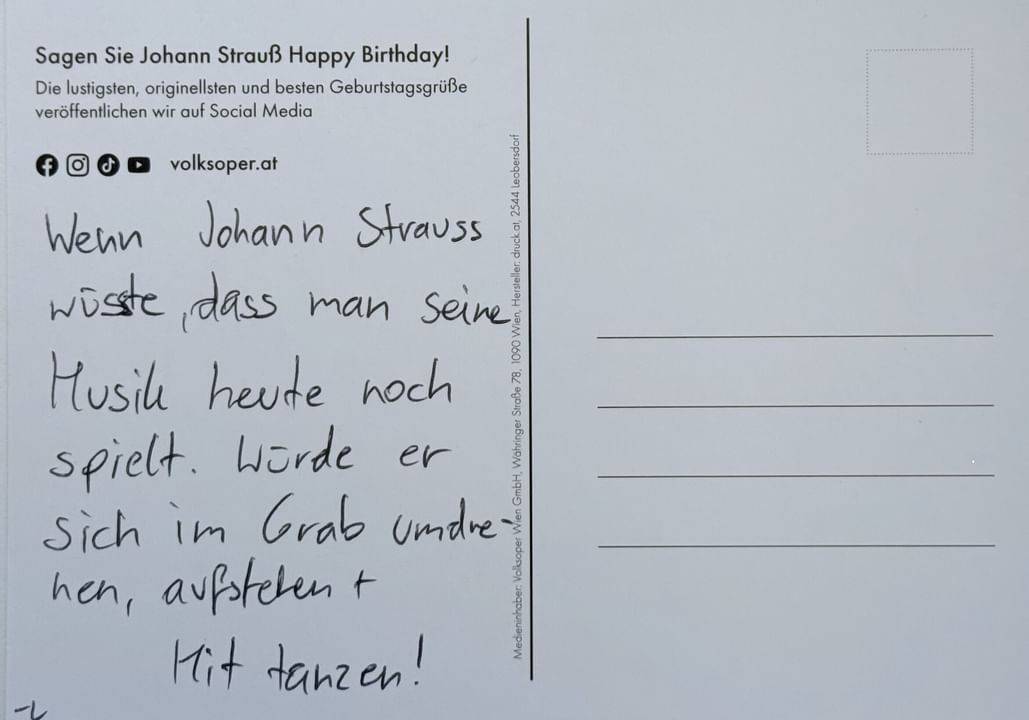 Sagen Sie Johann Strauß Happy Birthday!
Die lustigsten, originellsten und besten Geburtstagsgrüße
veröffentlichen wir auf Social Media
volksoper.at
Wenn Johann Strauss
wüsste, dass man seine
Musik heute noch
spielt. Würde er
sich im Grab umdre-
hen, aufstehen +
Mit tanzen!
Medieninhaber: Volksoper Wien GmbH, Währinger Straße 78, 1090 Wien, Hersteller: druck.at, 2544 Leobersdorf